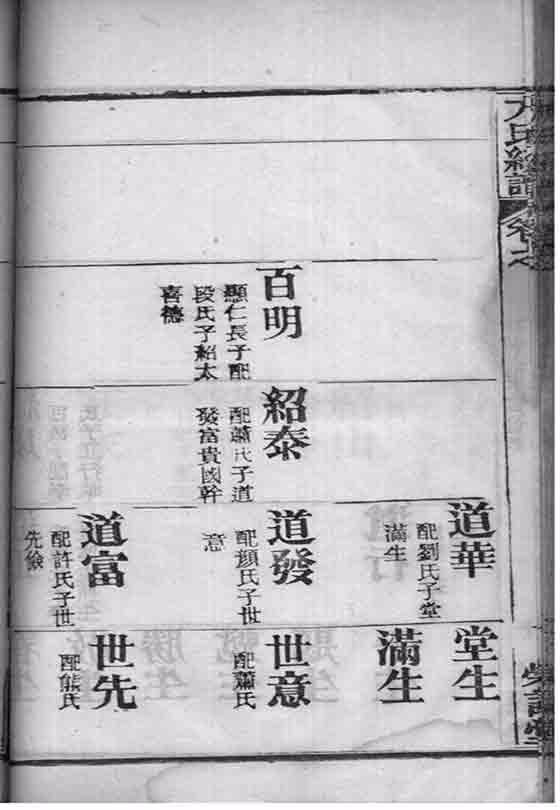 氏總譜
卷之
百明
顯仁長子配
段氏子紹太
喜德
紹泰
配蕭氏子道
發富貴國幹
道華
配劉氏子堂
滿生
道發
配顏氏子世
意
道富
配許氏子世
先儉
堂生
滿生
世意
配蕭氏
世先
配熊氏